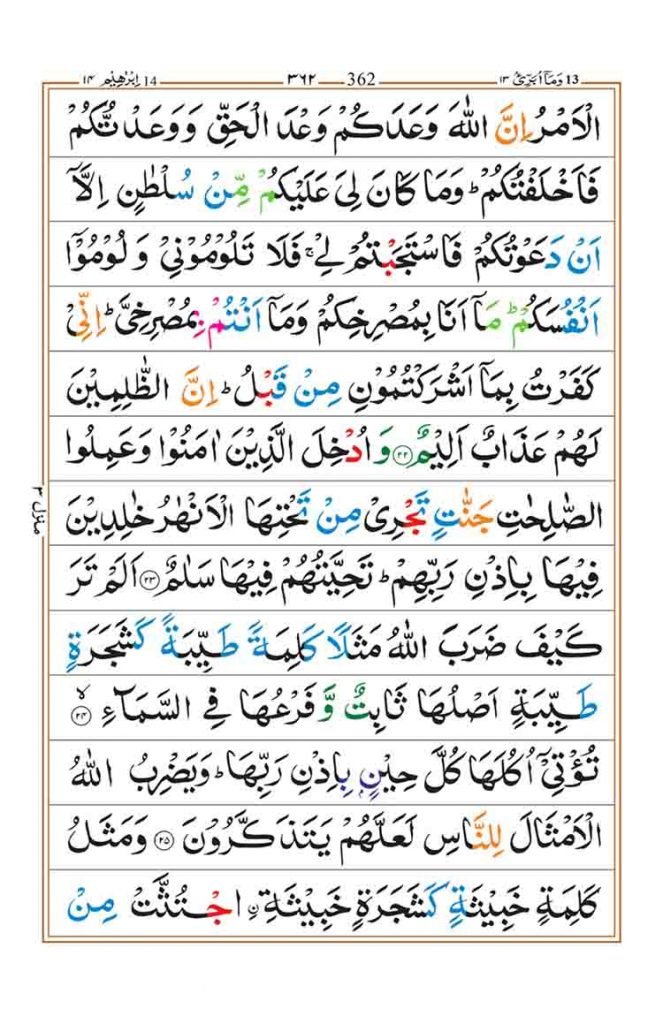 وَمَاۤ اُبَرِّئُ ١٣ 13 362 ٣٦٢ اِبْرٰهِيْم ١٤ 14
الْاَمْرُ اِنَّ اللّٰهَ وَعَدَكُمْ وَعْدَ الْحَقِّ وَوَعَدْتُّكُمْ
فَاَخْلَفْتُكُمْ ؕ وَمَا كَانَ لِىَ عَلَيْكُمْ مِّنْ سُلْطٰنٍ اِلَّاۤ
اَنْ دَعَوْتُكُمْ فَاسْتَجَبْتُمْ لِىْ ۚ فَلَا تَلُوْمُوْنِىْ وَلُوْمُوْۤا
اَنْفُسَكُمْ ؕ مَاۤ اَنَا بِمُصْرِخِكُمْ وَمَاۤ اَنْتُمْ بِمُصْرِخِىَّ ؕ اِنِّىْ
كَفَرْتُ بِمَاۤ اَشْرَكْتُمُوْنِ مِنْ قَبْلُ ؕ اِنَّ الظّٰلِمِيْنَ
لَهُمْ عَذَابٌ اَلِيْمٌ ﴿٢٢﴾ وَاُدْخِلَ الَّذِيْنَ اٰمَنُوْا وَعَمِلُوا
الصّٰلِحٰتِ جَنّٰتٍ تَجْرِىْ مِنْ تَحْتِهَا الْاَنْهٰرُ خٰلِدِيْنَ
فِيْهَا بِاِذْنِ رَبِّهِمْ ؕ تَحِيَّتُهُمْ فِيْهَا سَلٰمٌ ﴿٢٣﴾ اَلَمْ تَرَ
كَيْفَ ضَرَبَ اللّٰهُ مَثَلًا كَلِمَةً طَيِّبَةً كَشَجَرَةٍ
طَيِّبَةٍ اَصْلُهَا ثَابِتٌ وَّفَرْعُهَا فِى السَّمَآءِ ۙ ﴿٢٤﴾
تُؤْتِىْۤ اُكُلَهَا كُلَّ حِيْنٍۢ بِاِذْنِ رَبِّهَا ؕ وَيَضْرِبُ اللّٰهُ
الْاَمْثَالَ لِلنَّاسِ لَعَلَّهُمْ يَتَذَكَّرُوْنَ ﴿٢٥﴾ وَمَثَلُ
كَلِمَةٍ خَبِيْثَةٍ كَشَجَرَةٍ خَبِيْثَةِ ۟اجْتُثَّتْ مِنْ
منزل ٣